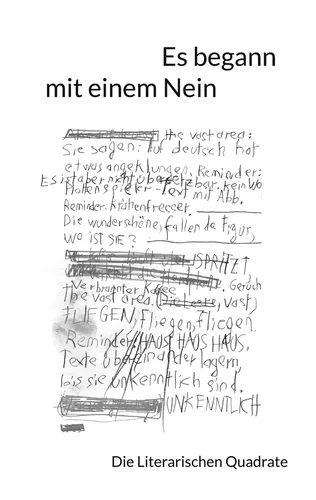 Es begann
mit einem Nein
the vast area:
Sie sagen: Auf deutsch hat
etwas angeklungen. Reminder:
Es ist aber nicht übersetzbar. kein Wo
Text mit Abb.
Reminder: Krähenfresser.
Die wunderschöne, fallende Figur,
WO IST SIE?
SPRITZT,
Verbrannter Kaffee Geruch
the vast area. (die Leere, vast)
FLIEGEN, Fliegen, fliegen.
Reminder: HAUS HAUS HAUS.
Texte übereinander lagern,
bis sie unkenntlich sind.
UNKENNTLICH
Die Literarischen Quadrate